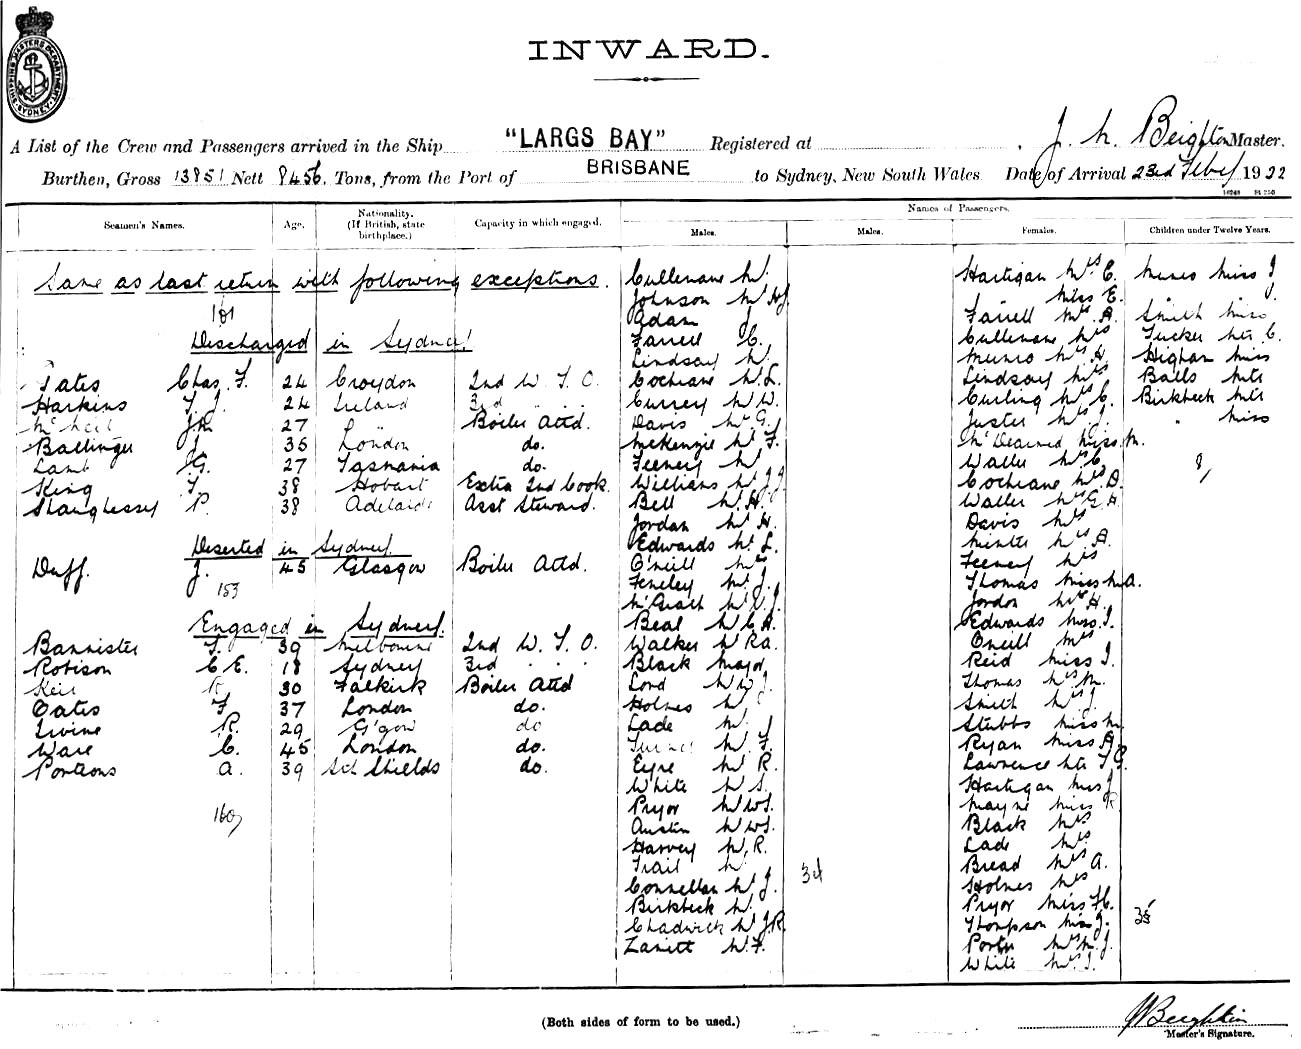 SHIPPING MASTERS DEPARTMENT SYDNEY
INWARD.
A List of the Crew and Passengers arrived in the Ship "LARGS BAY" Registered at J. H. Beighton Master.
Burthen, Gross 13851 Nett 8456 Tons, from the Port of BRISBANE to Sydney, New South Wales Date of Arrival 23rd Feby 1922
Names of Passengers.
Seamen's Names. Age. Nationality. (If British, state birthplace.) Capacity in which engaged. Males. Males. Females. Children under Twelve Years.
Same as last return with following exceptions.
161
Discharged in Sydney
Tates Chas. F. 24 Croydon 2nd W. T. O.
Harkins T. J. 24 Ireland 3rd " " "
McNeil J.R. 27 London Boiler Attd.
Ballinger J. 36 London do.
Lamb G. 27 Tasmania do.
King T. 38 Hobart Extra 2nd Cook.
Shaughessy P. 38 Adelaide Asst Steward.
Deserted in Sydney
Duff. J. 45 Glasgow Boiler Attd.
153
Engaged in Sydney.
Bannister T. 39 Melbourne 2nd W. T. O.
Robison C E. 18 Sydney 3rd " " "
Keir R. 30 Falkirk Boiler Attd
Oates F. 37 London do.
Irvine R. 29 G'gow do
Ware C. 45 London do.
Portions A. 39 Sth Shields do.
160
Cullenane Mr
Johnson Mr HJ
Adam J.
Farrell C.
Lindsay Mr
Cochrane Mr L.
Currey Mr W.
Davis Mr G.
McKenzie Mr F.
Feeney Mr
Williams Mr J J
Bell Mr H.
Jordan Mr H.
Edwards Mr L.
O'neill Mr
Feneley Mr J.
McGrath Mr V.J.
Beal Mr C A.
Walker Mr Ra.
Black Major
Lord Mr W J.
Holmes Mr C
Lade Mr J
Turner Mr F.
Eyre Mr R.
White Mr S.
Pryor Mr WS.
Austin Mr WS.
Harvey Mr R.
Trail Mr
Connellan Mr J.
Birkbeck Mr
Chadwick Mr J.R.
Zanitt Mr F.
34
Hartigan Mrs C.
Miss E.
Farrell Mrs A.
Cullenane Mrs
Munro Mrs H.
Lindsay Mrs
Curling Mrs C.
Juster Mrs J.
McDearmid Miss M.
Waller Mrs C.
Cochrane Mrs D.
Waller Mrs G.A.
Davis Mrs
Minter Mrs A.
Feeney Mrs
Thomas Miss M.A.
Jordon Mrs H.
Edwards Miss I.
Oneill Mrs
Reid Miss I.
Thomas Mrs M.
Smith Mrs J.
Stubbs Miss M
Ryan Miss A
Lawrence Mrs T G.
Hartigan Miss J
Mayne Miss R
Black Mrs
Lade Mrs
Bread Mrs A.
Holmes Mrs
Pryor Miss H.C.
Thompson Miss J.
Porter Mrs M. J.
White Mrs I.
35
Munro Miss J
" " J.
Smith Miss
Tucker Mtr C.
Higham Miss
Balls Mtr
Birkbeck Mtr
" Miss
8
(Both sides of form to be used.)
JHBeighton
Master's Signature.